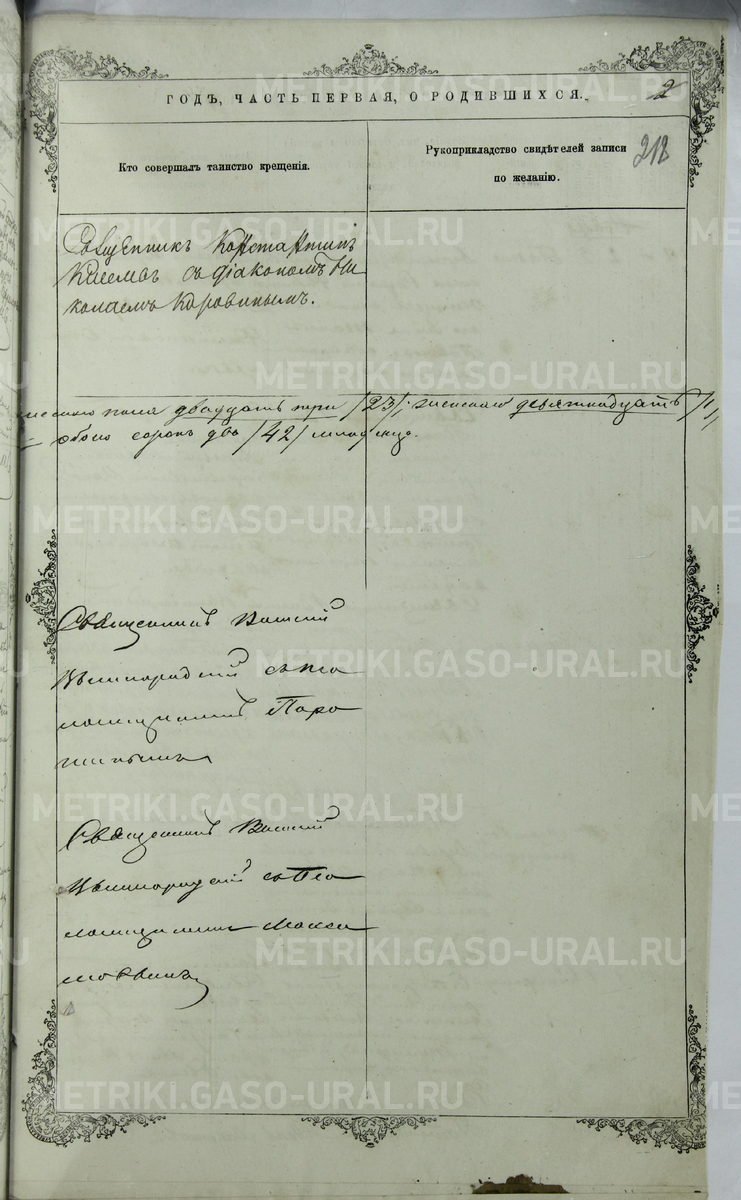 ГОДЪ, ЧАСТЬ ПЕРВАЯ, О РОДИВШИХСЯ.
2
Кто совершалъ таинство крещенія.
Рукоприкладство свидѣтелей записи
по желанію.
218
Священникъ Константинъ
съ діакономъ Ни
колаемъ Коровинымъ.
пола двадцать три /23/, женскаго девятнадцать
обоего сорокъ два /42/ младенца.
Священникъ
съ пса
ломщикомъ Паро
Священникъ
съ пса
ломщикомъ Макси
мовымъ
METRIKI.GASO-URAL.RU